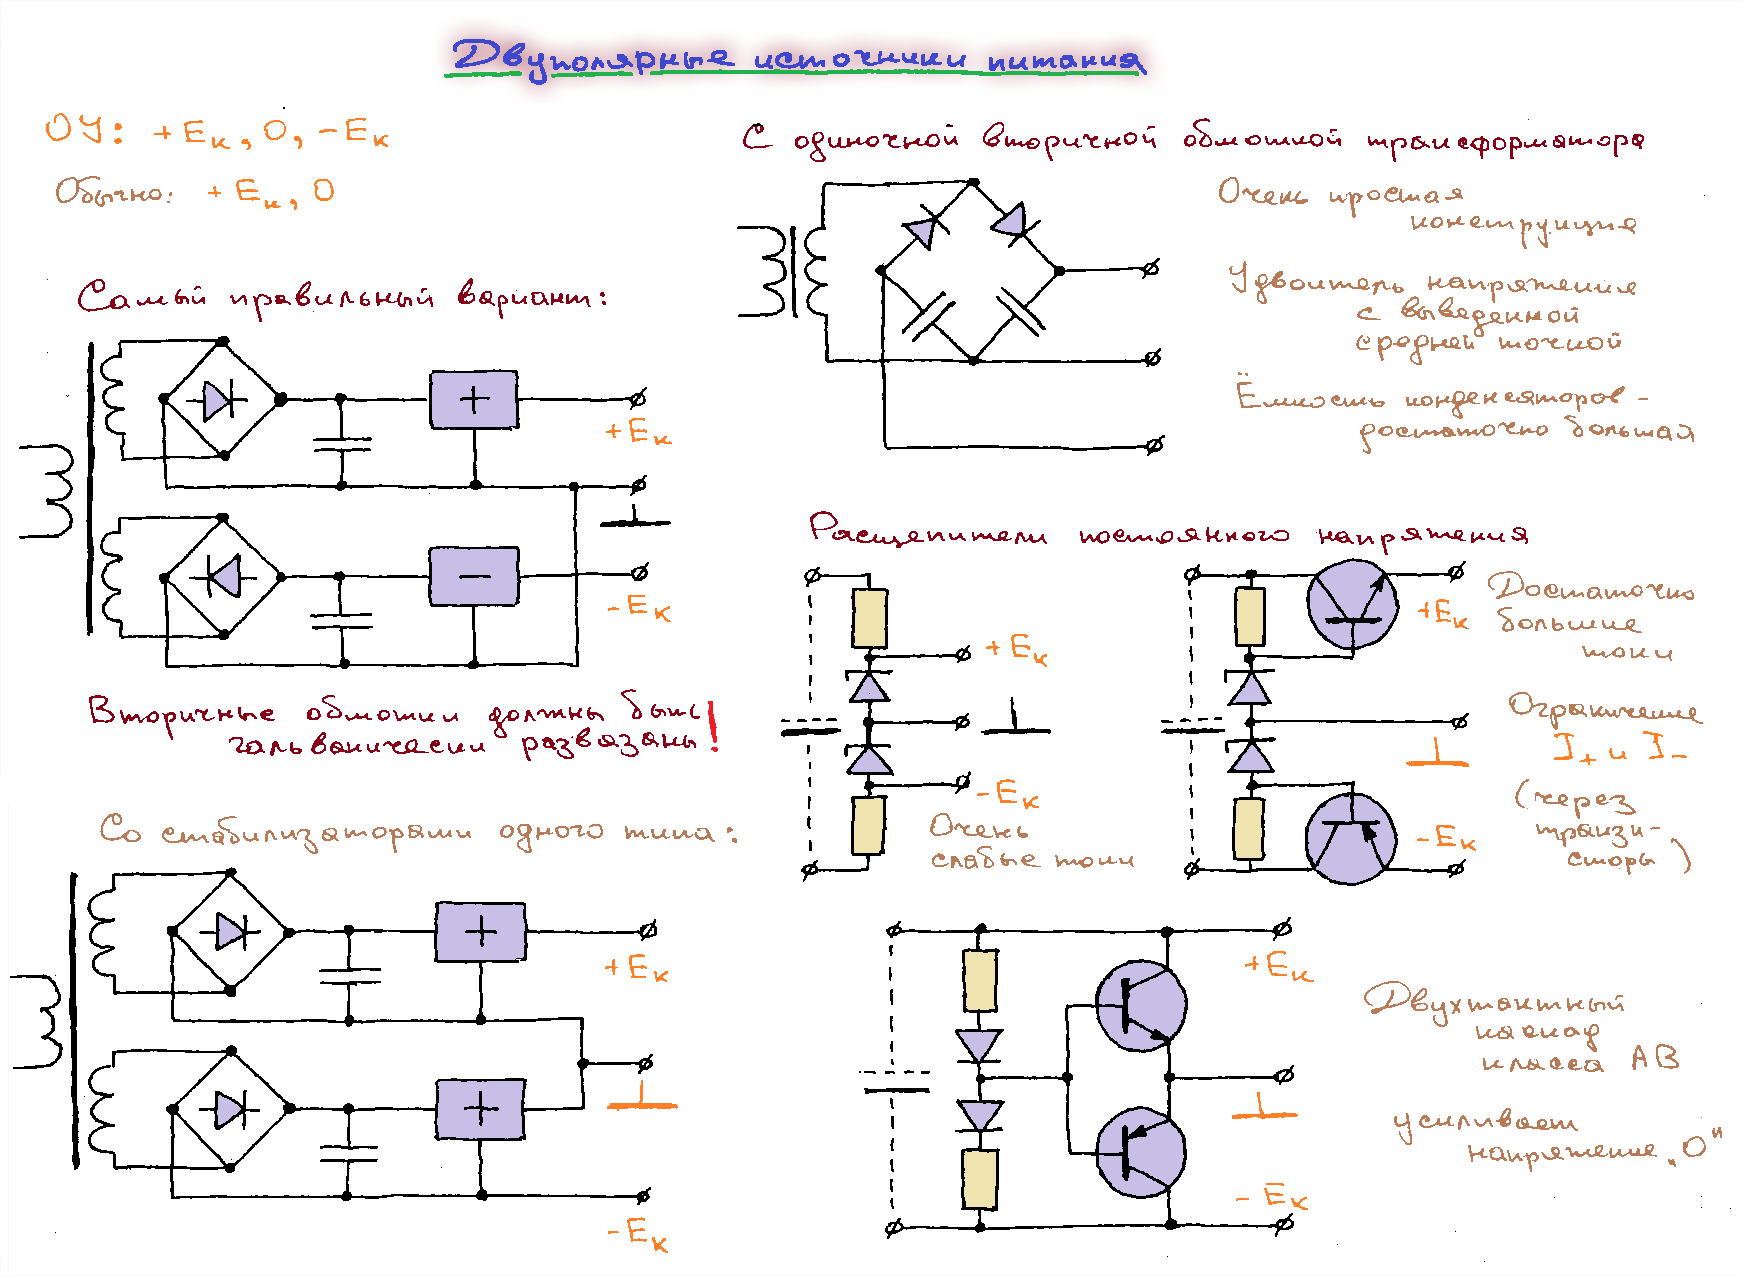 Двуполярные источники питания
ОУ: +Eк, 0, -Eк
Обычно: +Eк, 0
Самый правильный вариант:
+
+Eк
−
-Eк
Вторичные обмотки должны быть
гальванически развязаны!
Со стабилизаторами одного типа:
+
+Eк
+
-Eк
С одиночной вторичной обмоткой трансформатора
Очень простая
конструкция
Удвоитель напряжения
с выведенной
средней точкой
Ёмкость конденсаторов -
достаточно большая
Расщепители постоянного напряжения
+Eк
-Eк
Очень
слабые токи
+Eк
-Eк
Достаточно
большие
токи
Ограничение
I+ и I-
(через
транзи-
сторы)
+Eк
-Eк
Двухтактный
каскад
класса АВ
усиливает
напряжение „0"